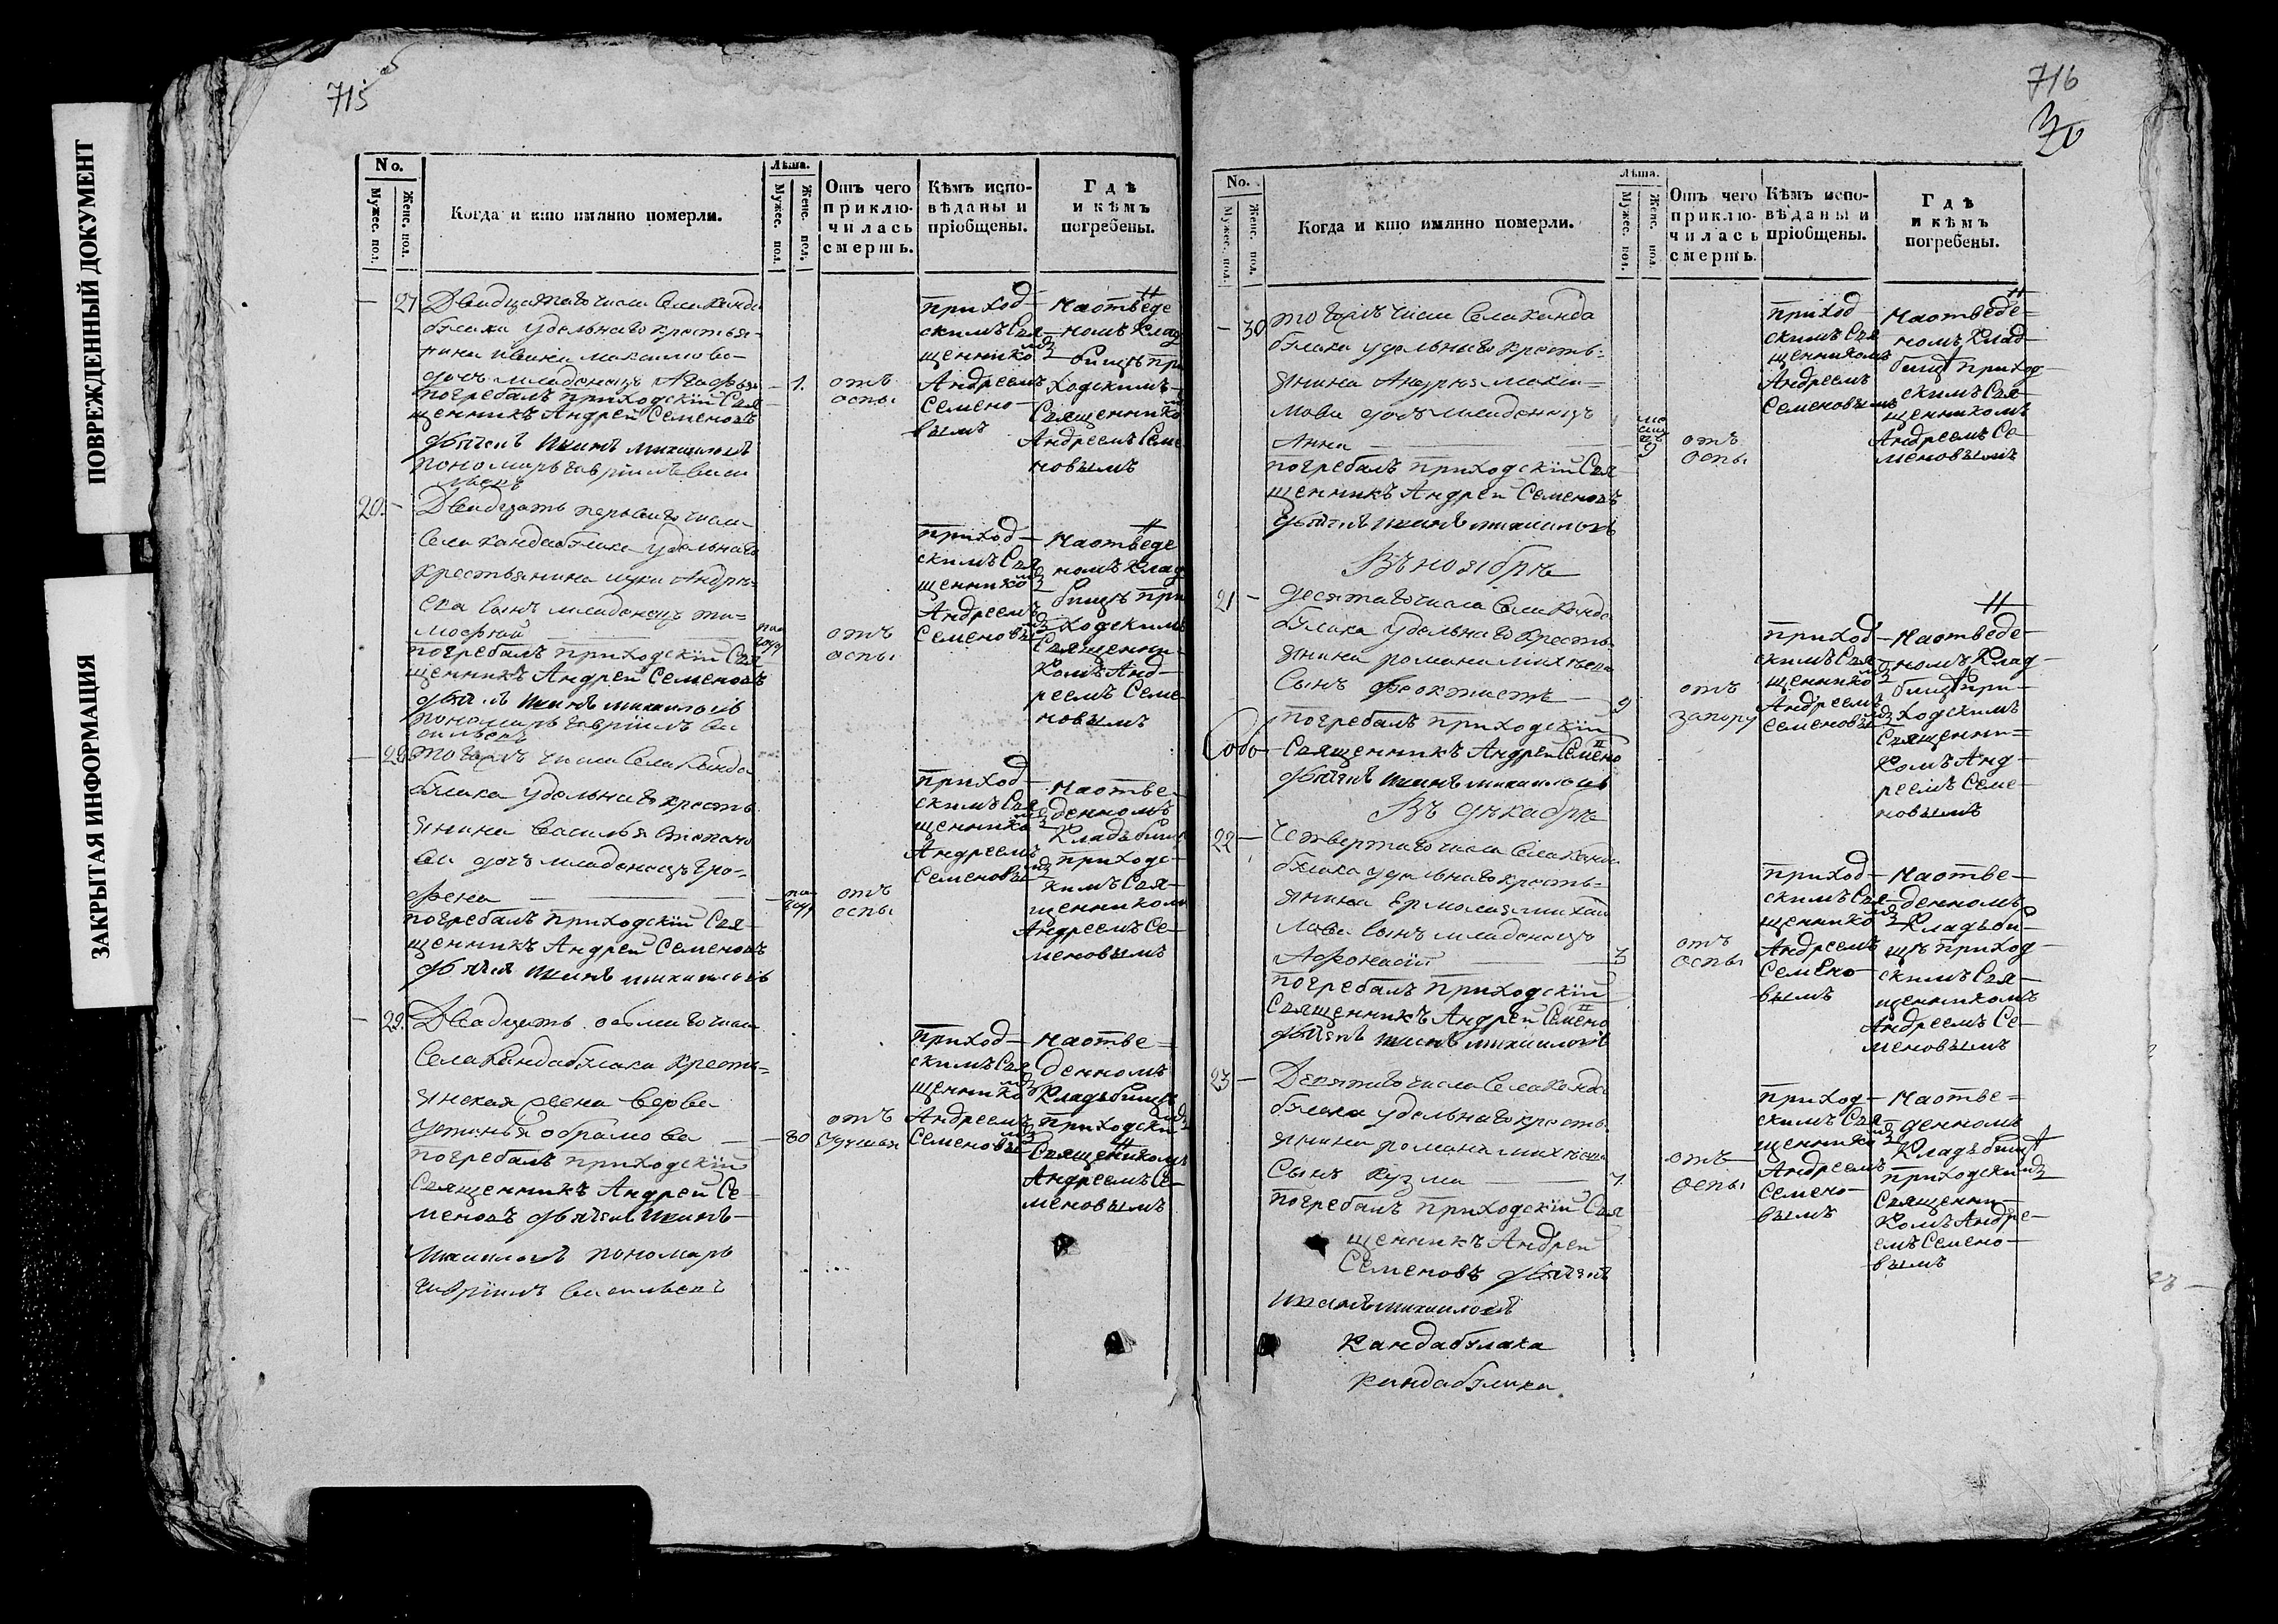 ПОВРЕЖДЕННЫЙ ДОКУМЕНТ
ЗАКРЫТАЯ ИНФОРМАЦИЯ
715 об
No.
Мужес. пол.
Женс. пол.
Когда и кто имянно померли.
Лѣта.
Мужес. пол.
Женс. пол.
Отъ чего приклю-
чилась
смерть.
Кѣмъ испо-
вѣданы и
пріобщены.
Гдѣ
и кѣмъ
погребены.
27
Двадцатаго числа села Канда
булака удельнаго крестья-
нина Ивана Максимова
дочь младенецъ Агафья
1.
отъ
оспы
погребалъ приходскій Свя-
щенникъ Андрей Семеновъ
дьячекъ Иванъ Михайловъ
пономарь Гавріилъ Васи
льевъ
приход-
скимъ Свя
щеннико
мъ
Андреемъ
Семено-
вымъ
На отведе
н
номъ Клад
бищѣ при
ходскимъ
Священнико
мъ
Андреемъ Семе
новымъ
20.
Двадцать перваго числа
села Кандабулака удельнаго
крестьянина Луки Андре-
ева сынъ младенецъ Ти-
мофей
пол
году
отъ
оспы
погребалъ приходскій Свя-
щенникъ Андрей Семеновъ
дьячекъ Иванъ Михайловъ
пономарь Гавріилъ Ва
сильевъ
приход-
скимъ Свя
щеннико
мъ
Андреемъ
Семеновы
мъ
На отведе
н
номъ Клад
бищѣ при
ходскимъ
Священни-
комъ Анд-
реемъ Семе-
новымъ
28
того жъ числа села Канда
булака удельнаго кресть
янина Василья Степано
ва дочь младенецъ Гро-
фена
пол
году
отъ
оспы
погребалъ приходскій Свя-
щенникъ Андрей Семеновъ
дьячекъ Иванъ Михайловъ
приход-
скимъ Свя
щеннико
мъ
Андреемъ
Семеновы
мъ
На отве-
денномъ
Кладьбищѣ
приходс-
кимъ Свя-
щенникомъ
Андреемъ Се-
меновымъ
29.
Двадцать осьмаго числа
Села Кандабулака кресть-
янская жена вдова
Устинья Обрамова
80
отъ
старости
погребалъ приходскій
Священникъ Андрей Се-
меновъ дьячекъ Иванъ
Михайловъ пономарь
Гавріилъ Васильевъ
приход-
скимъ Свя
щеннико
мъ
Андреемъ
Семеновы
мъ
На отве-
денномъ
Кладьбищѣ
приходски
мъ
Священникомъ
н
Андреемъ Се-
меновымъ
716
No.
Мужес. пол.
Женс. пол.
Когда и кто имянно померли.
Лѣта.
Мужес. пол.
Женс. пол.
Отъ чего
приклю-
чилась
смерть.
Кѣмъ испо-
вѣданы и
пріобщены.
Гдѣ
и кѣмъ
погребены.
30
того жъ числа села Канда
булака удельнаго кресть-
янина Андрея Макси-
мова дочь младенецъ
Анна
9
отъ
оспы
погребалъ приходскій Свя-
щенникъ Андрей Семеновъ
дьячекъ Иванъ Михайловъ
приход
скимъ Свя
щенникомъ
Андреемъ
Семеновымъ
На отведе-
н
номъ Клад-
бищѣ приход-
скимъ Свя-
щенникомъ
Андреемъ Се-
меновымъ
Въ ноябрѣ
21
десятаго числа села Канда
булака удельнаго кресть-
янина Романа Михѣева
Сынъ Феоктистъ
9
отъ
запору
погребалъ приходскій
Священникъ Андрей Семено
дьячекъ Иванъ Михайловъ
приход-
скимъ Свя
щеннико
мъ
Андреемъ
Семеновы
мъ
На отведе-
н
номъ Клад-
бищѣ при-
ходскимъ
Священни-
комъ Анд-
реемъ Семе-
новымъ
Въ декабрѣ
22
Четвертаго числа села Канда
булака удельнаго кресть-
янина Ермолая Михай
лова сынъ младенецъ
Афонасій
3
отъ
оспы
погребалъ приходскій
Священникъ Андрей Семено
дьячекъ Иванъ Михайловъ
приход-
скимъ Свя
щеннико
мъ
Андреемъ
Семено-
вымъ
На отве-
денномъ
Кладьби-
щѣ приход-
скимъ Свя-
щенникомъ
Андреемъ Се-
меновымъ
23
Девятаго числа села Канда
булака удельнаго кресть
янина Романа Михѣева
Сынъ Кузма
7.
отъ
оспы
погребалъ приходскій Свя
щенникъ Андрей
Семеновъ дьячекъ
Иванъ Михайловъ
приход-
скимъ Свя
щеннико
мъ
Андреемъ
Семено-
вымъ
На отве-
денномъ
Кладьбищѣ
приходски
мъ
Священни-
комъ Андре-
емъ Семено-
вымъ
Кандабулака
Кандабулака